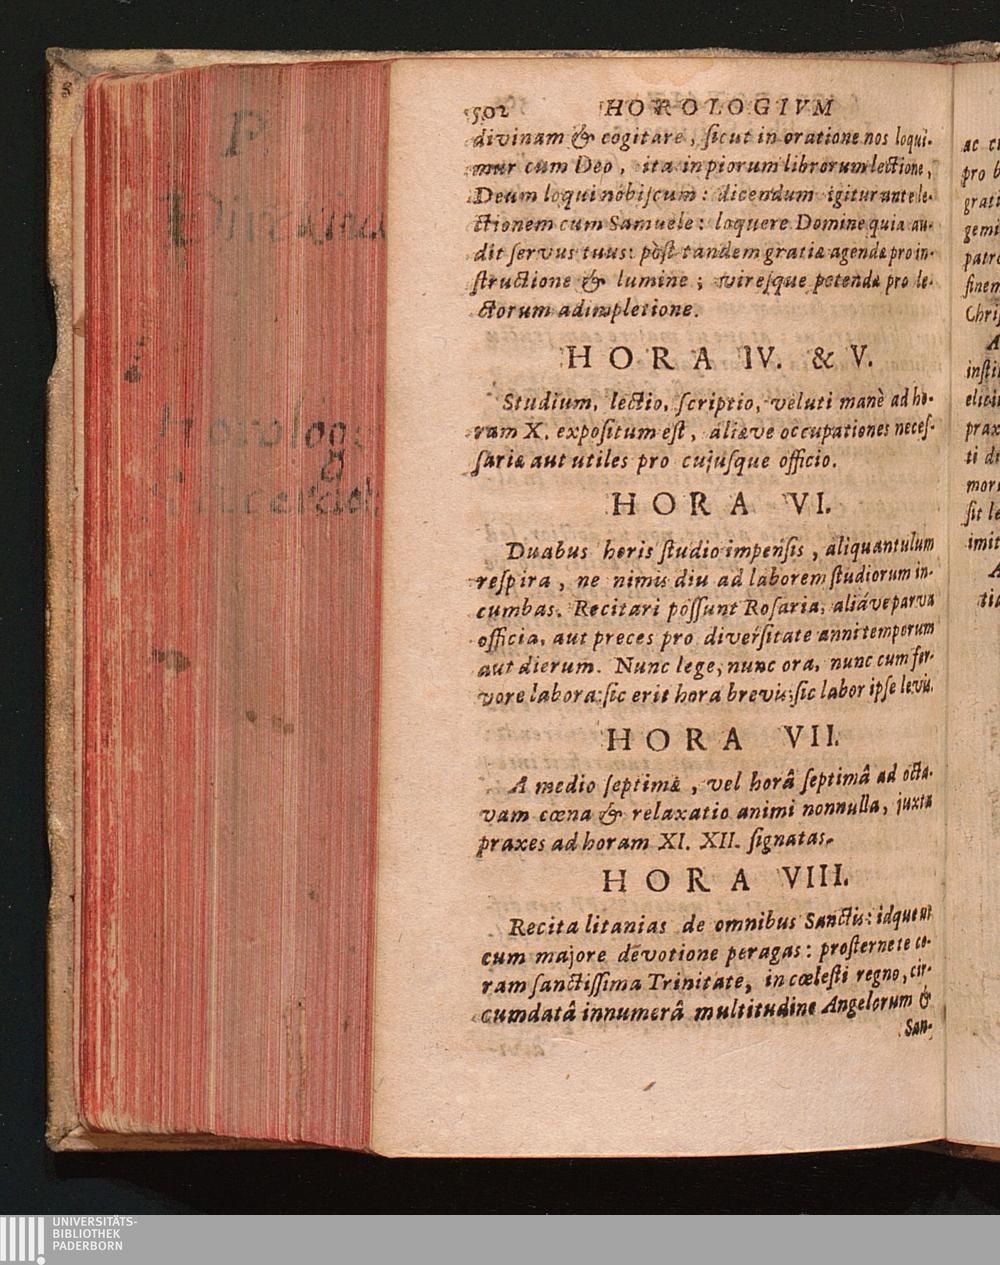 502 HOROLOGIVM
divinam & cogitare, ſicut in oratione nos loqui-
mur cum Deo, ita in piorum librorum lectione,
Deum loqui nobiſcum: dicendum igitur ante le-
ctionem cum Samuele: loquere Domine quia au-
dit ſervus tuus: pòſt tandem gratiæ agendæ pro in-
ſtructione & lumine; vireſque petendæ pro le-
ctorum adimpletione.
HORA IV. & V.
Studium, lectio, ſcriptio, veluti manè ad ho-
ram X. expoſitum eſt, aliæve occupationes neceſ-
ſariæ aut utiles pro cujuſque officio.
HORA VI.
Duabus horis ſtudio impenſis, aliquantulum
reſpira, ne nimis diu ad laborem ſtudiorum in-
cumbas. Recitari poſſunt Roſaria, aliáve parva
officia, aut preces pro diverſitate anni temporum
aut dierum. Nunc lege, nunc ora, nunc cum fer-
vore labora: ſic erit hora brevis; ſic labor ipſe levis.
HORA VII.
A medio ſeptimæ, vel horâ ſeptimâ ad octa-
vam cœna & relaxatio animi nonnulla, juxta
praxes ad horam XI. XII. ſignatas.
HORA VIII.
Recita litanias de omnibus Sanctis: idque ut
cum majore devotione peragas: proſterne te co-
ram ſanctiſſima Trinitate, in cœleſti regno, cir-
cumdatâ innumerâ multitudine Angelorum &
San-
P.
Horolog
ac
pro
grati
gemi
patro
finem
Chriſ
A
inſti
prax
ti
mor
ſit
imit
A
UNIVERSITÄTS-
BIBLIOTHEK
PADERBORN